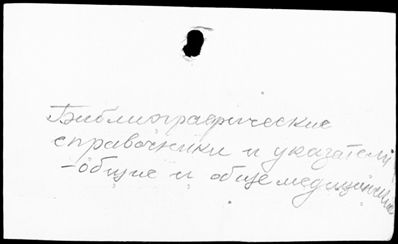 Библиографические
справочники и указатели
-общие и общемедицинские